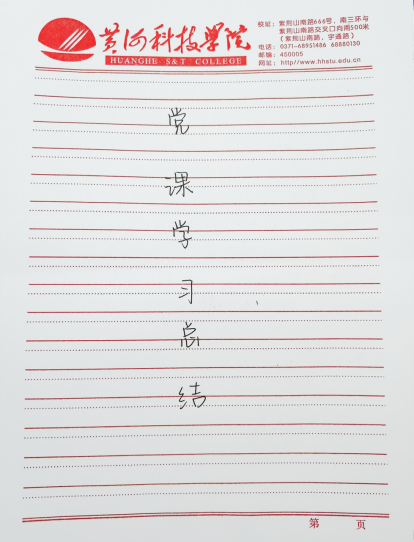 黄河科技学院
HUANGHE S&T COLLEGE
校址：紫荆山南路666号，南三环与
紫荆山南路交叉口向南500米
（紫荆山南路，宇通路）
电话：0371-68951486 68880130
邮编：450005
网址：http//www.hhstu.edu.cn
党
课
学
习
总
结
第 页